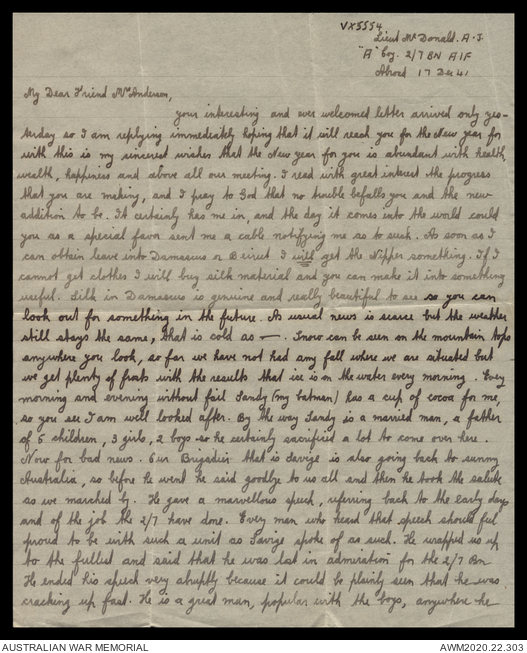 VX5554
Lieut McDonald. A.J.
"A" Coy. 2/7 BN AIF
Abroad 17 Dec 41
My Dear Friend Mrs Anderson,
your interesting and ever welcomed letter arrived only yes-
terday so I am replying immediately hoping that it will reach you for the New year for
with this is my sincerest wishes that the New year for you is abundant with health,
wealth, happiness and above all our meeting. I read with great interest the progress
that you are making, and I pray to God that no trouble befalls you and the new
addition to be. It certainly has me in, and the day it comes into the world could
you as a special favor sent me a cable notifying me as to such. As soon as I
can obtain leave into Damascus or Beirut I will get the Nipper something. If I
cannot get clothes I will buy silk material and you can make it into something
useful. Silk in Damascus is genuine and really beautiful to see so you can
look out for something in the future. As usual news is scarce but the weather
still stays the same, that is cold as —. Snow can be seen on the mountain tops
anywhere you look, so far we have not had any fall where we are situated but
we get plenty of frosts with the results that ice is on the water every morning. Every
morning and evening without fail Sandy (my batman) has a cup of cocoa for me,
so you see I am well looked after. By the way Sandy is a married man, a father
of 5 children, 3 girls, 2 boys so he certainly sacrificed a lot to come over here.
Now for bad news. Our Brigadier that is Savige is also going back to sunny
Australia, so before he went he said goodbye to us all and then he took the salute
as we marched by. He gave a marvellous speech, referring back to the early days
and of the job the 2/7 have done. Every man who heard that speech should feel
proud to be with such a unit as Savige spoke of as such. He wrapped us up
to the fullest and said that he was lost in admiration for the 2/7 Bn
He ended his speech very abruptly because it could be plainly seen that he was
cracking up fast. He is a great man, popular with the boys, anywhere he
AUSTRALIAN WAR MEMORIAL
AWM2020.22.303